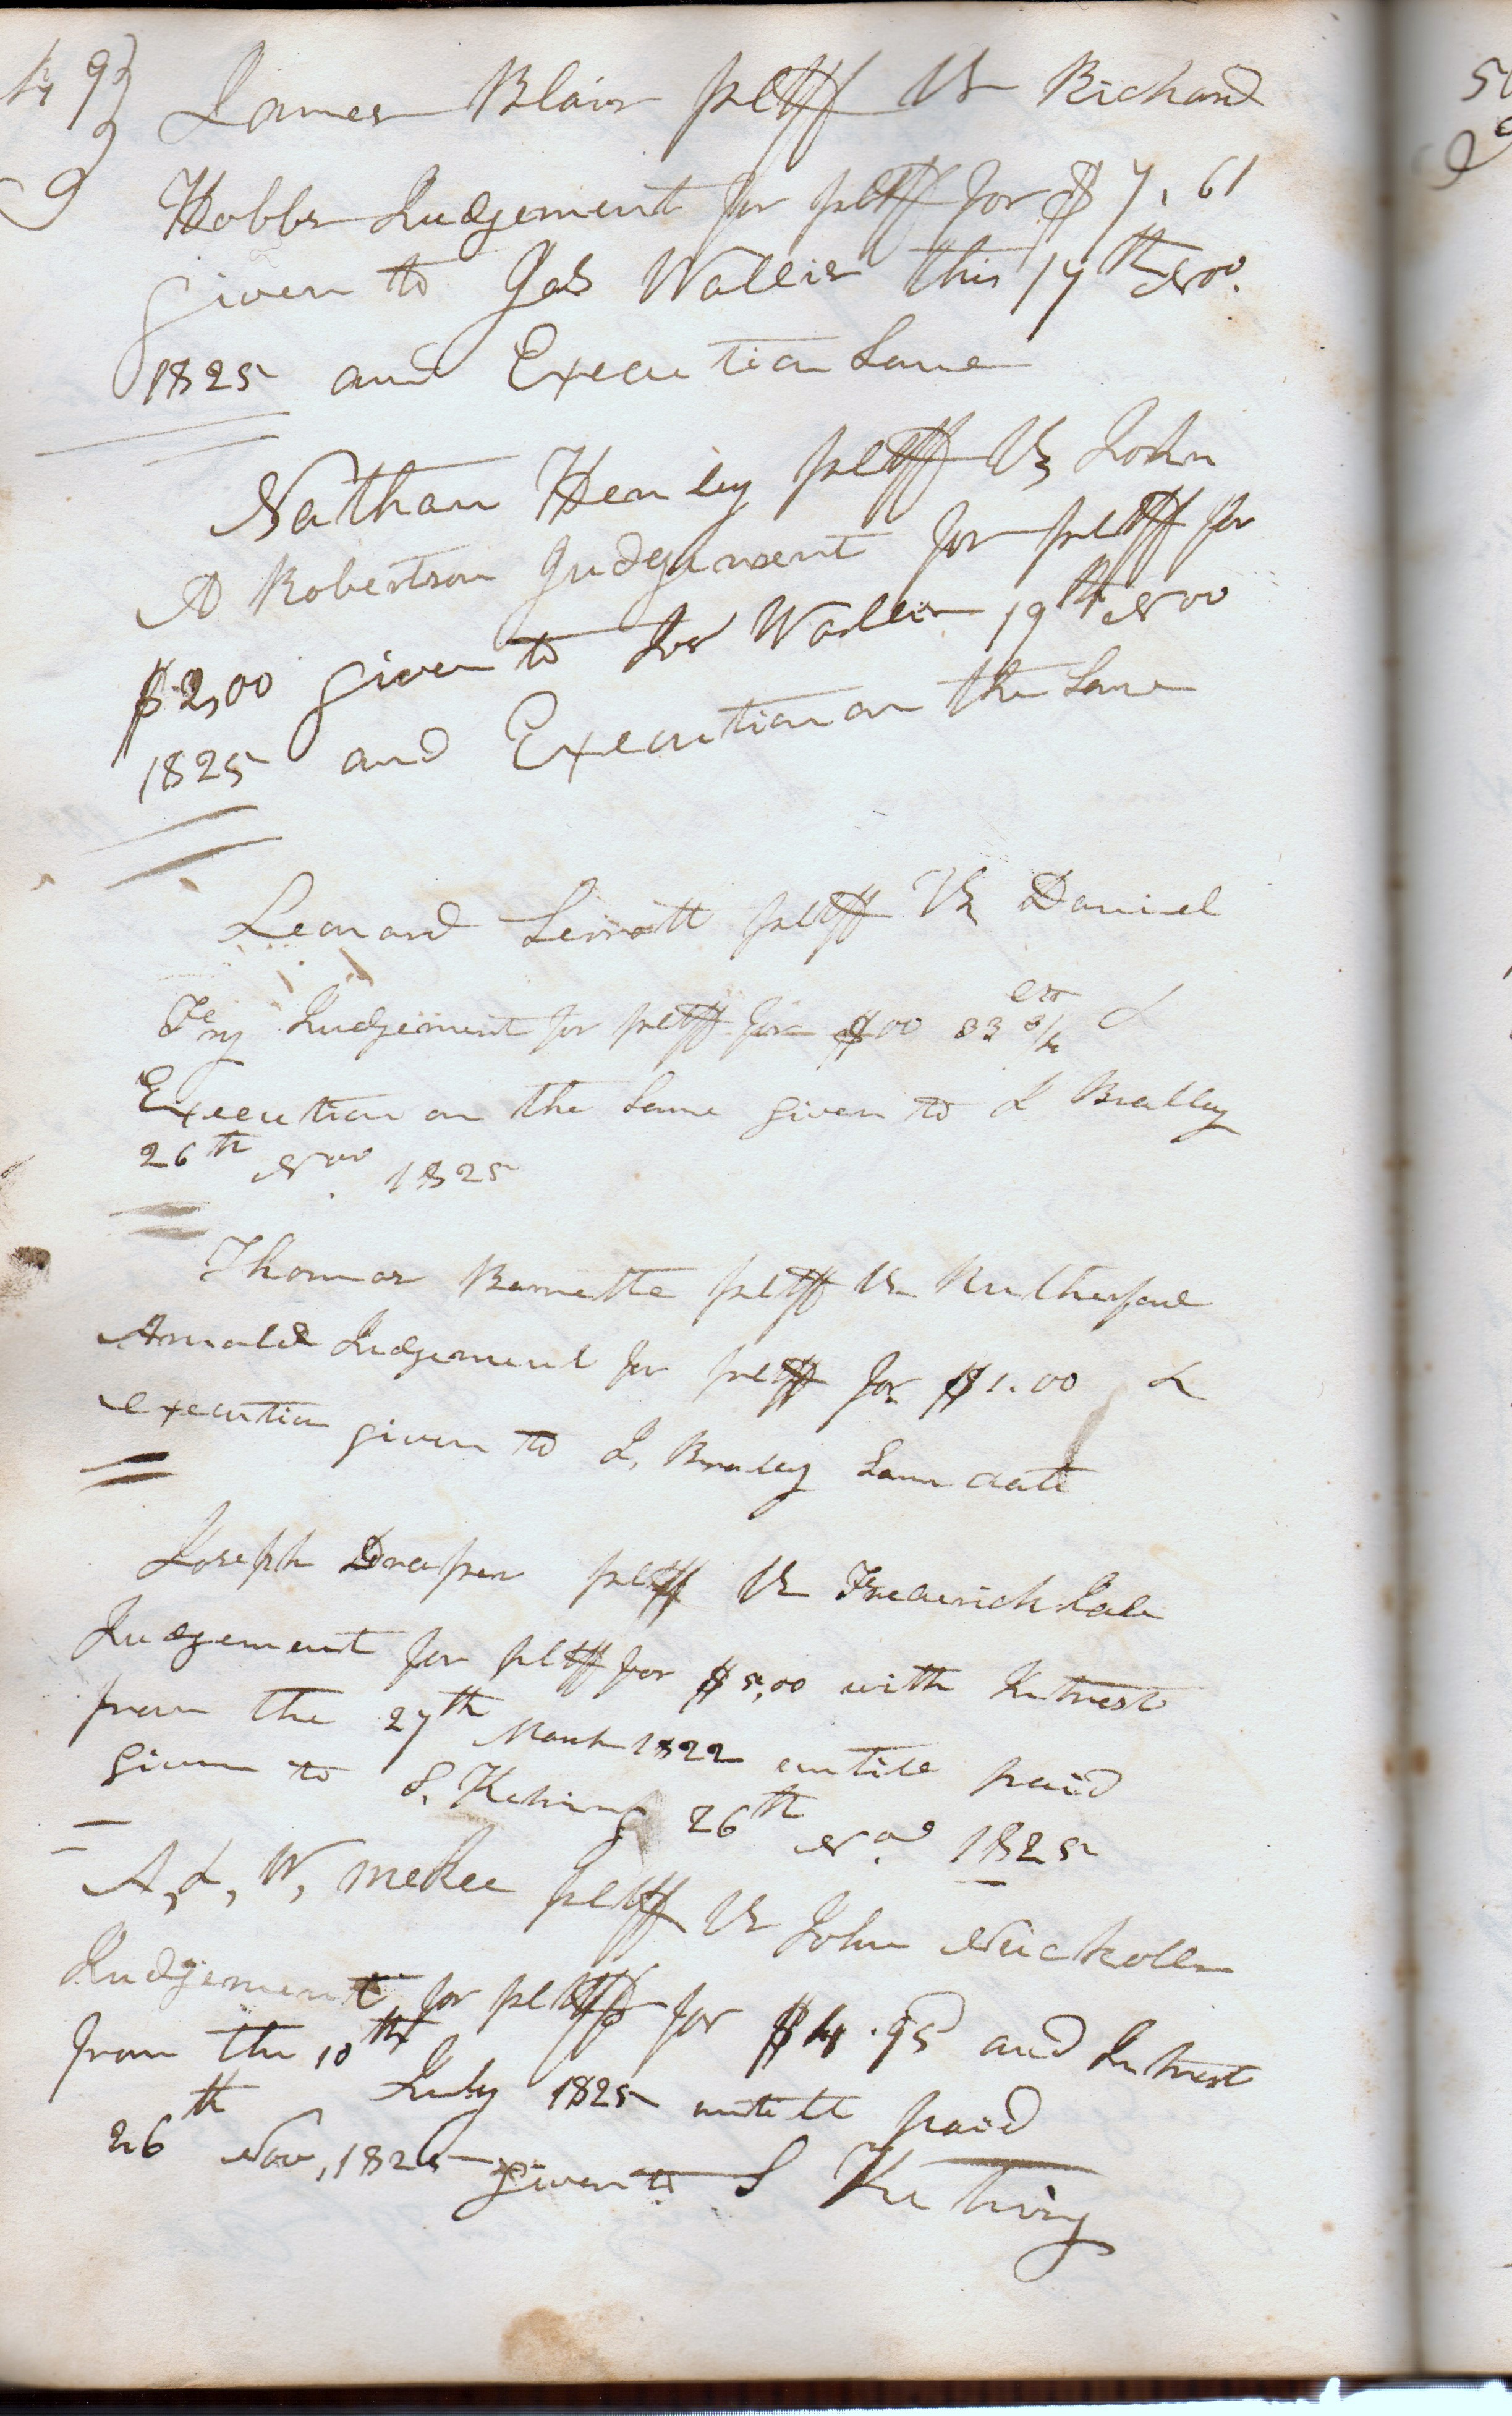 49}
James Blair pltff vs Richard
9
Hobbs Judgement for pltff for $7.61
given to Jas Wallis this 17th Nov.
1825 and Execution Same
Nathan Henley pltff vs John
A Robertson Judgement for pltff for
$2,00 given to Jas Wallis 19th Nov
1825 and Execution on the Same
Leonard pltff vs Daniel
Fry Judgement for pltff for $00 33 3/4 cts &
Execution on the Same given to L Bralley
26th Nov. 1825
Thomas Barnette pltff vs Rutherford
Arnold Judgement for pltff for $1.00 &
execution given to L, Braley Same date
Joseph Draper pltff vs Frederick
Judgement for pltff for $5,00 with Intrest
from the 27th March 1822 untill paid
given to S. 26th Nov 1825
A, &, W, McKee pltff vs John Nuckolls
Judgement for pltff for $4.95 and Intrest
from the 10th July 1825 untill paid
26th Nov, 1825 given to S